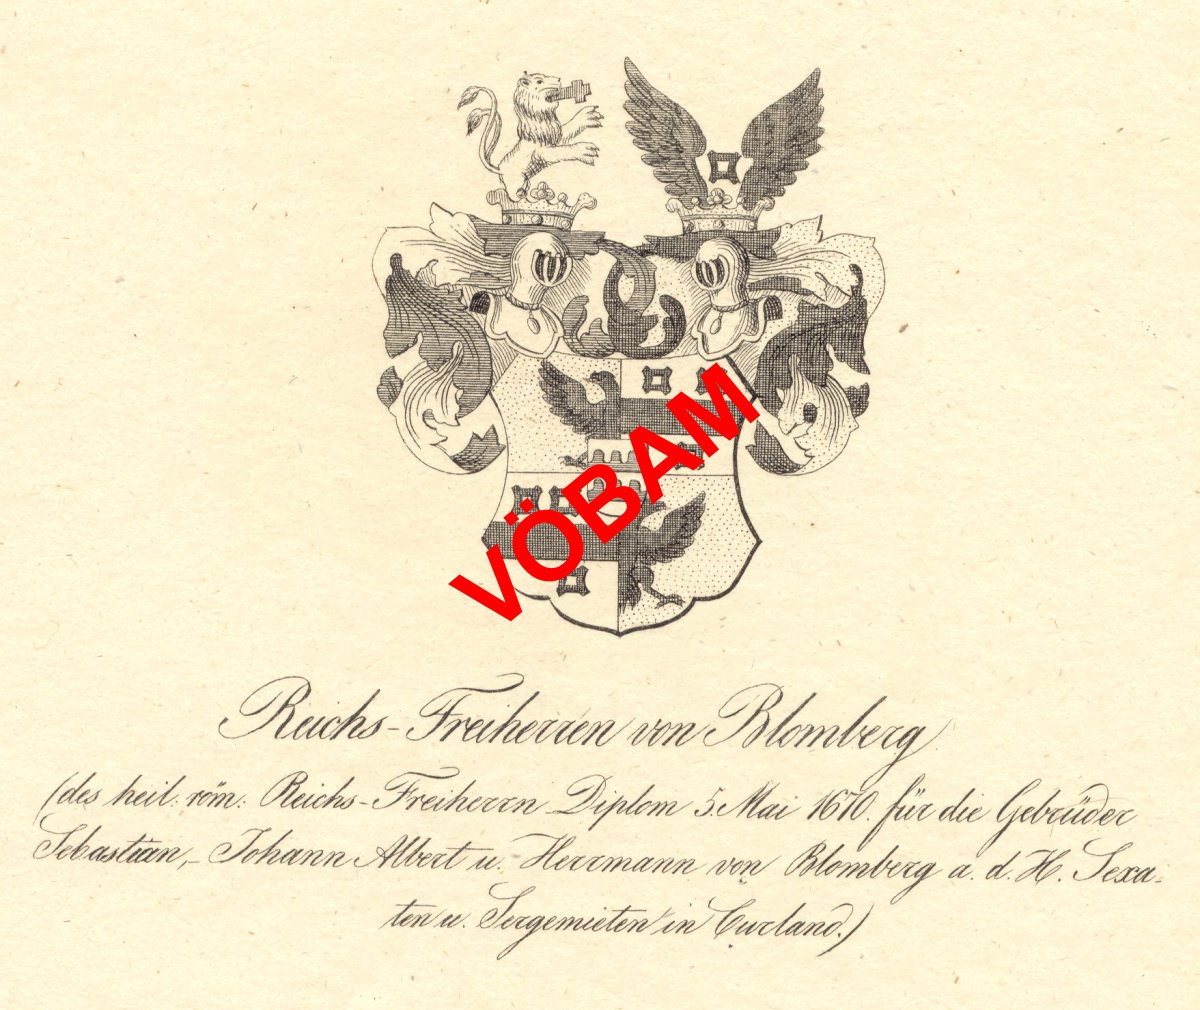 VÖBAM
Reichs-Freiherren von Blomberg.
(des heil: röm: Reichs-Freiherrn Diplom 5. Mai 1670. für die Gebrüder
Sebastian,- Johann Albert u. Herrmann von Blomberg a. d. H. Sexa-
ten u. Sergemieten in Curland.)